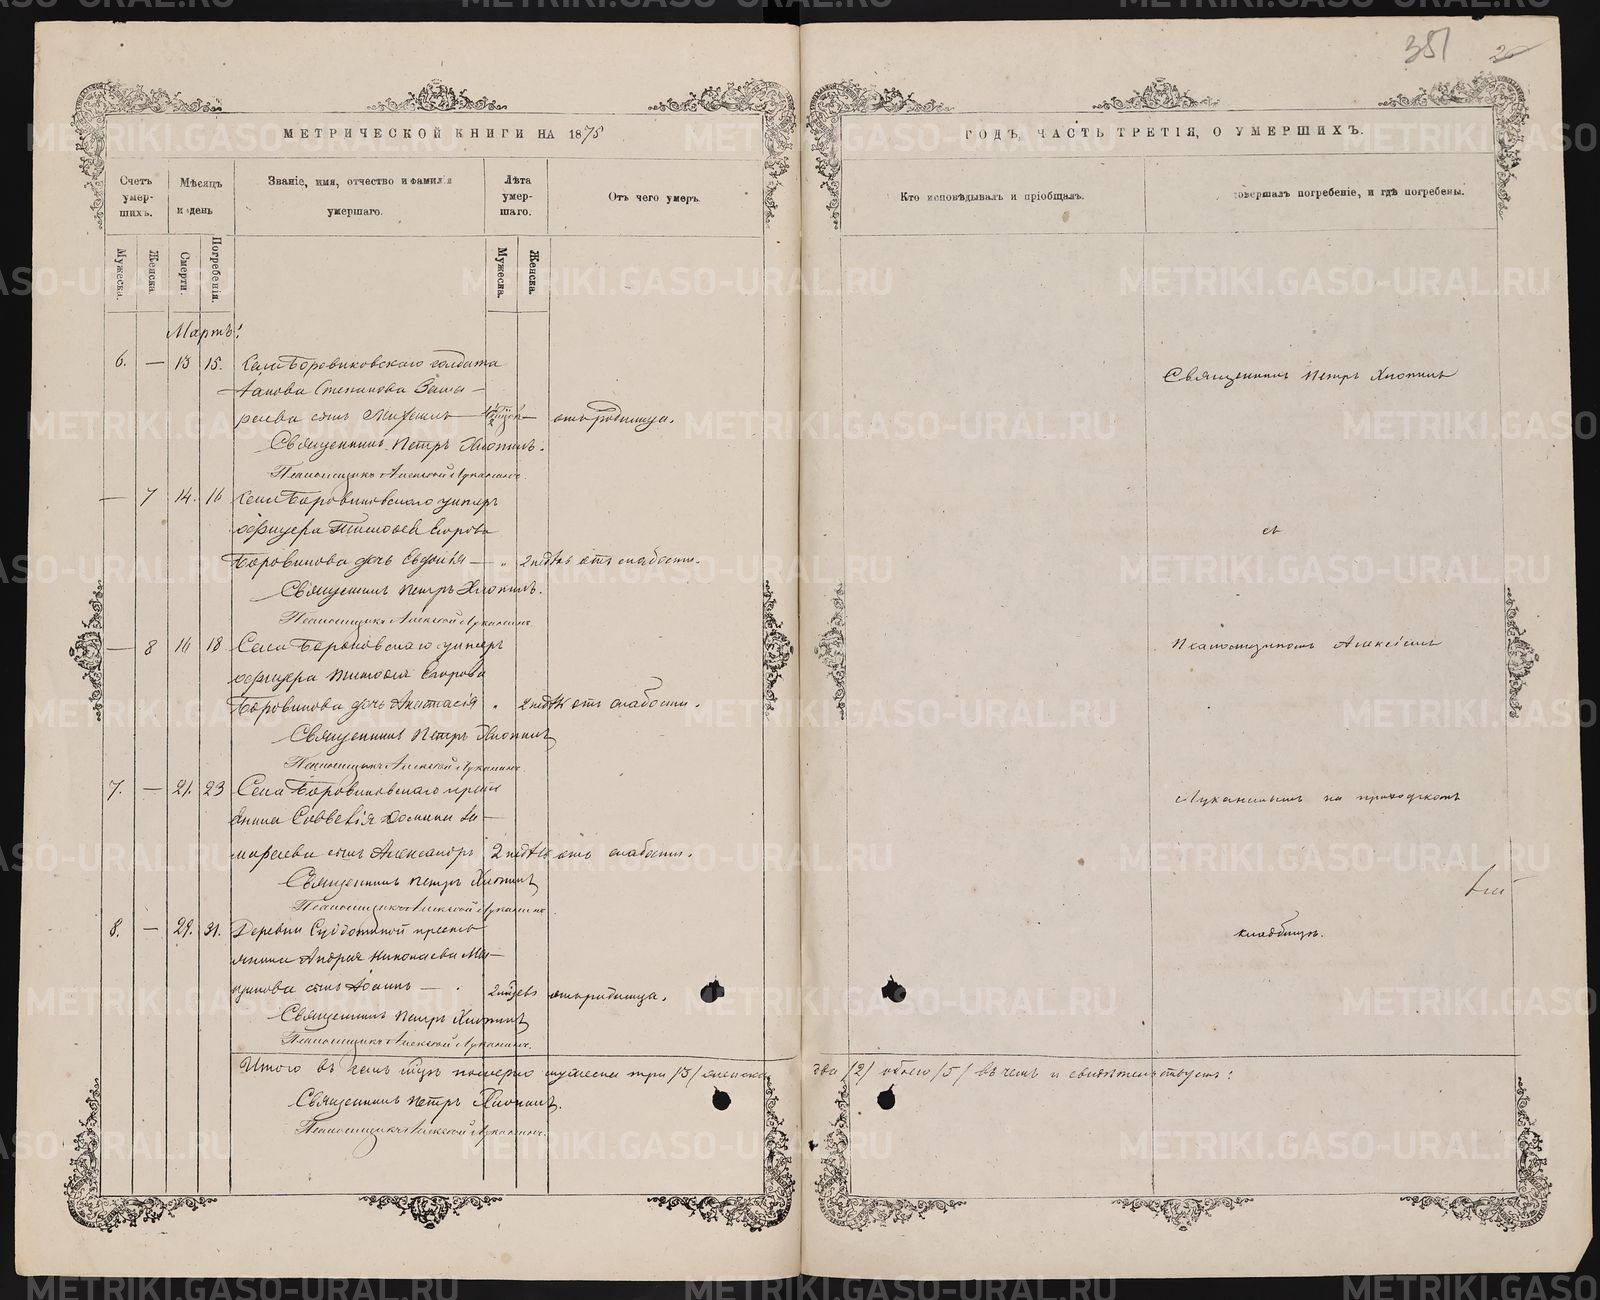 351
МЕТРИЧЕСКОЙ КНИГИ НА 1875
ГОДЪ, ЧАСТЬ ТРЕТІЯ, О УМЕРШИХЪ.
Счетъ умер-шихъ.
Мѣсяцъ и день
Званіе, имя, отчество и фамилія умершаго.
Лѣта умер-шаго.
Отъ чего умеръ.
Кто исповѣдывалъ и пріобщалъ.
совершалъ погребеніе, и гдѣ погребены.
Мужеска.
Женска.
Смерти.
Погребенія.
Мужеска.
Женска.
Мартъ.
6. — 13 15. Села Боровиковскаго солдата
Якова Степанова
сынъ Михаилъ — отъ родимца.
Священникъ Петръ Хлопинъ.
Псаломщикъ Алексѣй Луканинъ.
— 7 14. 16 Села Боровиковскаго унтеръ
офицера Тимофея Егорова
Боровикова дочь Евдокія — " 2 недѣль отъ слабости.
Священникъ Петръ Хлопинъ.
Псаломщикъ Алексѣй Луканинъ.
— 8 16 18 Села Боровиковскаго унтеръ
офицера Тимофея Егорова
Боровикова дочь Анастасія " 2 недѣль отъ слабости.
Священникъ Петръ Хлопинъ
Псаломщикъ Алексѣй Луканинъ.
7. — 21. 23 Села Боровиковскаго кресть
янина Савватія
сынъ Александръ 2 недѣль отъ слабости.
Священникъ Петръ Хлопинъ
Псаломщикъ Алексѣй Луканинъ
8. — 29. 31. Деревни Субботиной кресть
янина Андрея Николаева
сынъ Іоаннъ — отъ родимца.
Священникъ Петръ Хлопинъ
Псаломщикъ Алексѣй Луканинъ.
Итого въ семъ м-цѣ померло мужеска три /3/ женска
два /2/ обоего /5/ въ чемъ и свидѣтельствуемъ:
Священникъ Петръ Хлопинъ.
Псаломщикъ Алексѣй Луканинъ.
Священникъ Петръ Хлопинъ
съ
Псаломщикомъ Алексѣемъ
Луканинымъ на приходскомъ
кладбищѣ.
METRIKI.GASO-URAL.RU